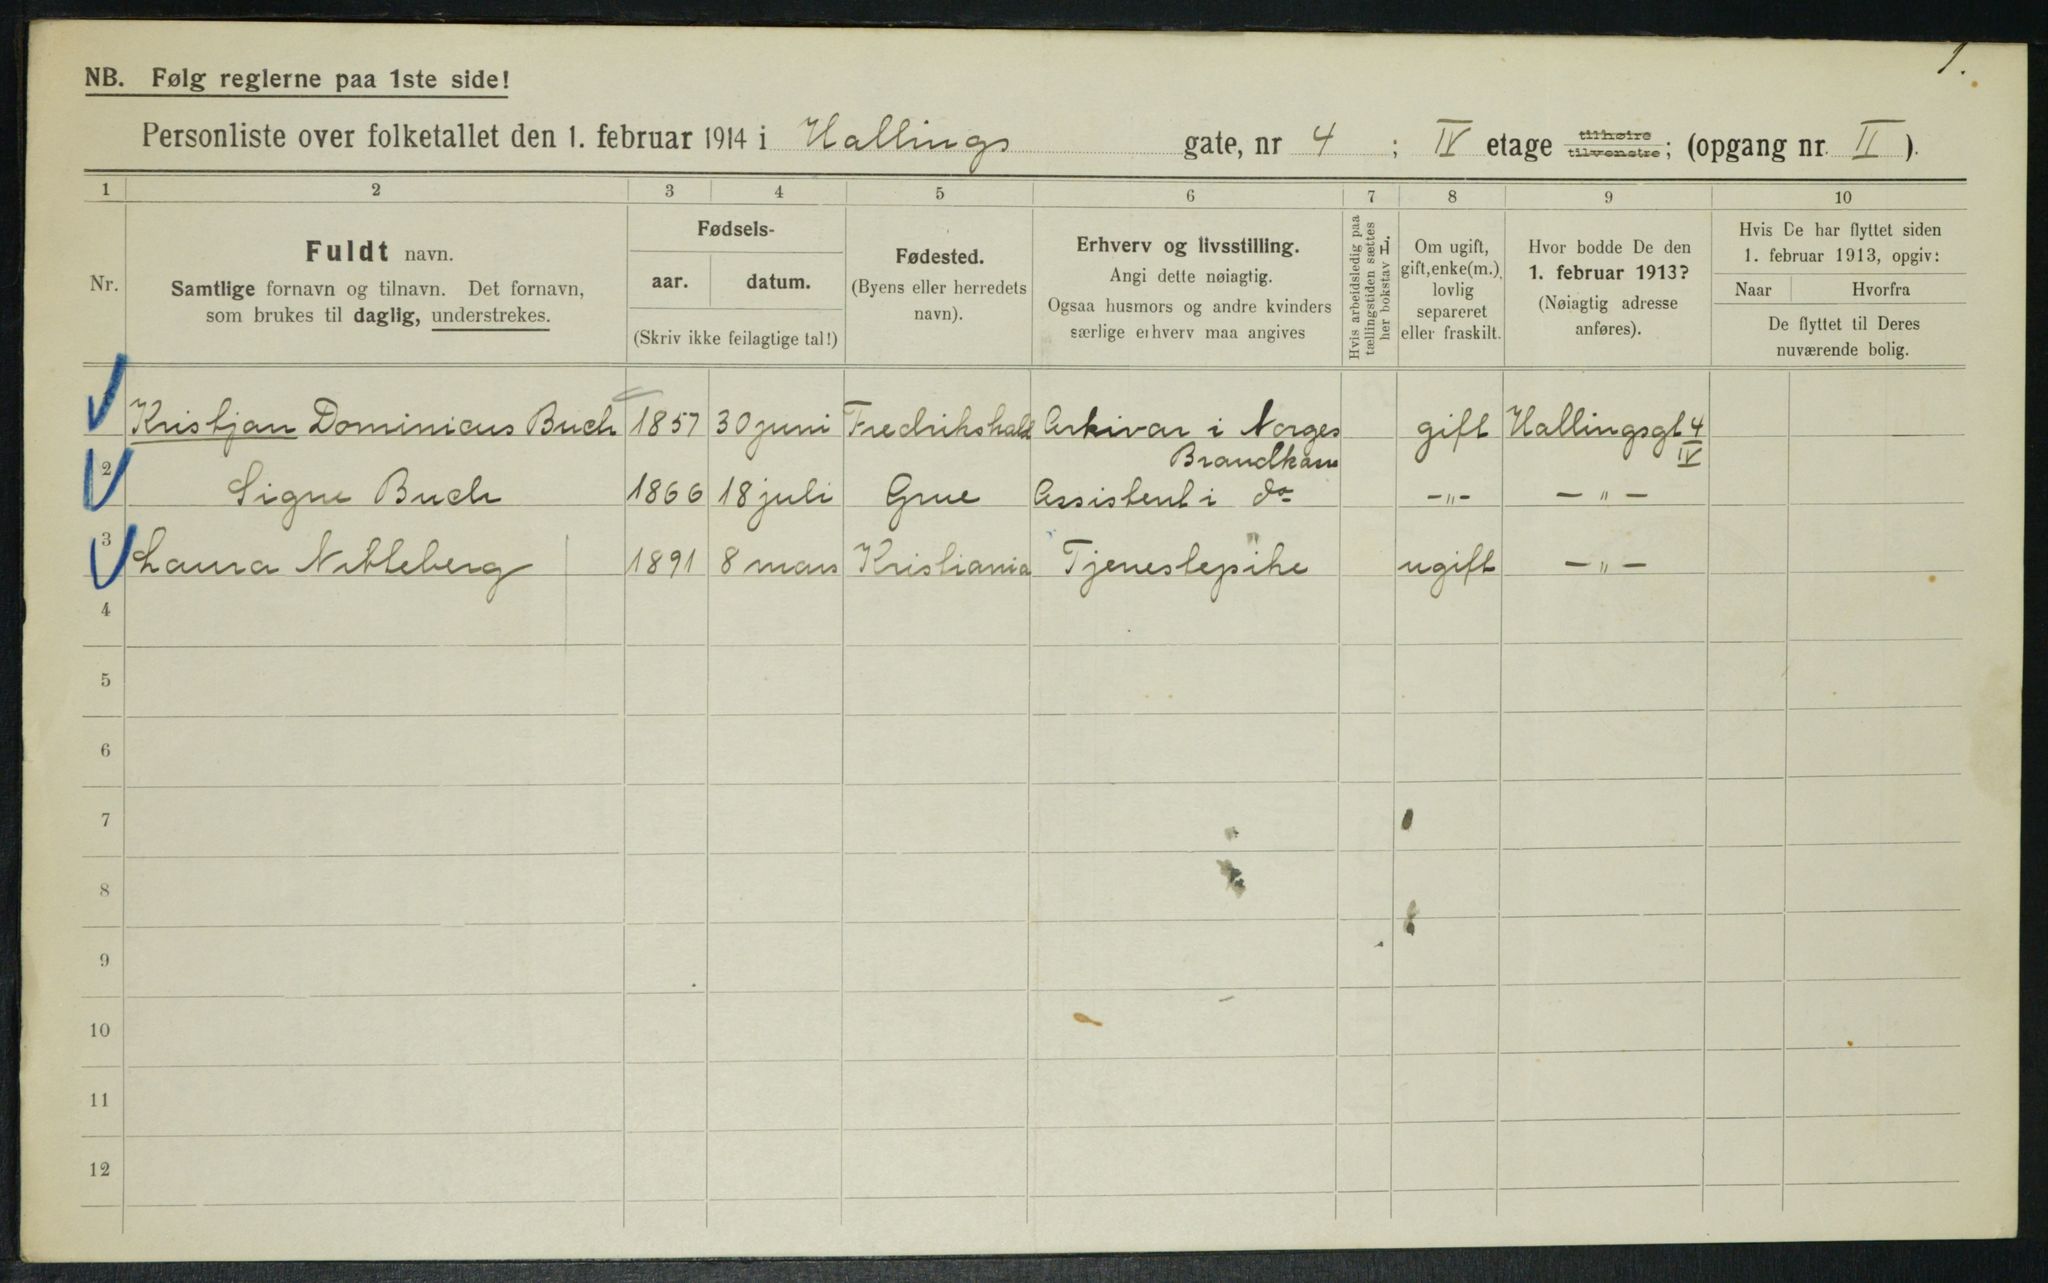 1.
NB. Følg reglerne paa 1ste side!
Personliste over folketallet den 1. februar 1914 i Hallings gate, nr 4 ; IV etage tilhøire tilvenstre; (opgang nr. II ).
1 2 3 4 5 6 7 8 9 10
Nr.
Fuldt navn.
Samtlige fornavn og tilnavn. Det fornavn,
som brukes til daglig, understrekes.
Fødsels-
aar. datum.
(Skriv ikke feilagtige tal!)
Fødested.
(Byens eller herredets
navn).
Erhverv og livsstilling.
Angi dette nøiagtig.
Ogsaa husmors og andre kvinders
særlige erhverv maa angives
Hvis arbeidsledig paa
tællingstiden sættes
her bokstav L.
Om ugift,
gift, enke(m.),
lovlig
separeret
eller fraskilt.
Hvor bodde De den
1. februar 1913?
(Nøiagtig adresse
anføres).
Hvis De har flyttet siden
1. februar 1913, opgiv:
Naar Hvorfra
De flyttet til Deres
nuværende bolig.
Kristjan Dominicus Buch 1857 30 juni Fredrikshald Arkivar i Norges Brandkasse gift Hallingsgt 4 IV
2 Signe Buch 1866 18 juli Grue Assistent i do -"- - " -
3 Laura Nitteberg 1891 8 mars Kristiania Tjenestepike ugift - " -
4
5
6
7
8
9
10
11
12